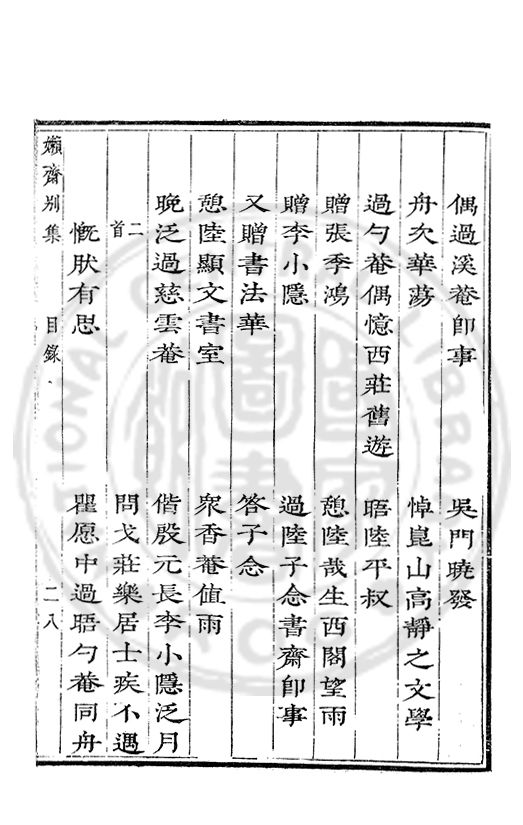 偶過溪菴即事　吳門曉發
舟次華蕩　悼崑山高靜之文學
過勺菴偶憶西莊舊遊　晤陸平叔
贈張季鴻　憩陸哉生西閣望雨
贈李小隱　過陸子念書齋即事
又贈書法華　答子念
憩陸顯文書室　衆香菴值雨
晚泛過慈雲菴　偕殷元長李小隱泛月
二首　問戈莊樂居士疾不遇
慨肰有思　瞿愿中過晤勺菴同舟
嬾齋別集　目錄　二八